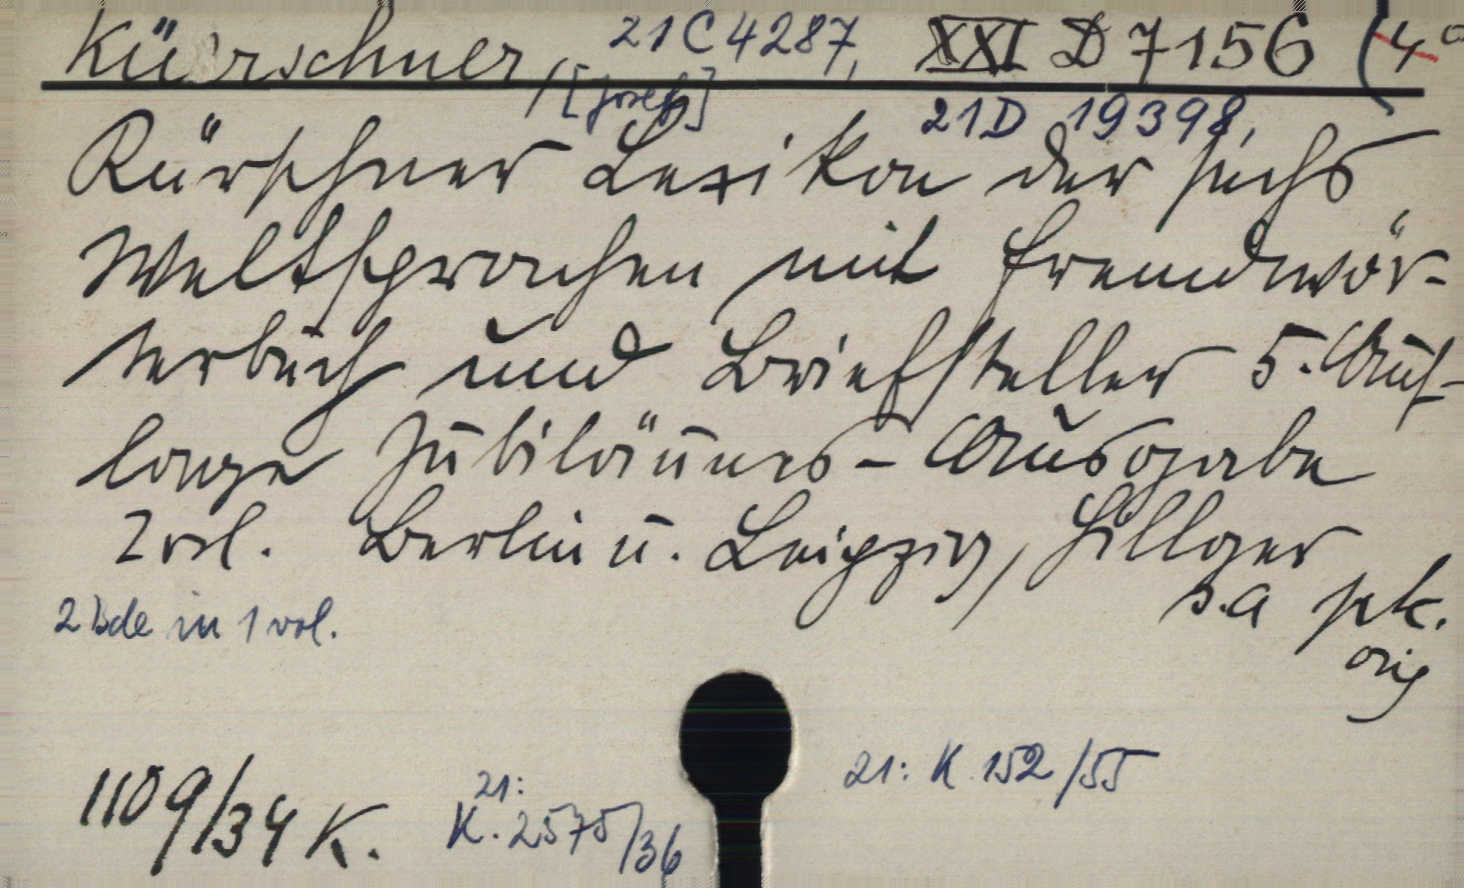 Kürschner, 21 C 4287, XXI D 7156 (4°
[Josef] 21 D 19398,
Kürschner Lexikon der sechs
Weltsprachen mit Fremdwör-
terbuch und Briefsteller 5. Auf-
lage Jubiläums-Ausgabe
2 vol. Berlin u. Leipzig, Hillger
s.a pk.
orig
2 Bde in 1 vol.
1109/34 K. 21: K. 2575/36 21: K 152/55